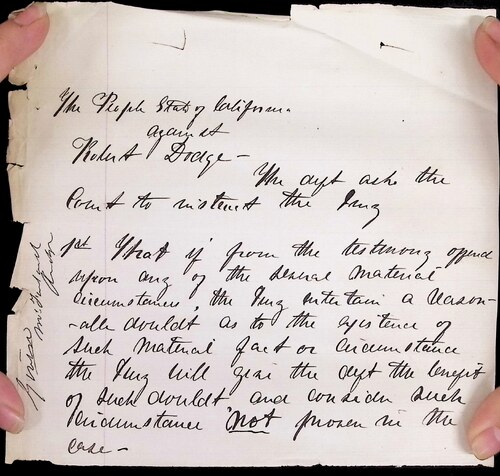 The People State of California
against
Robert Dodge -
The deft asks the
Court to instruct the Jury
1st That if from the testimony
upon any of the several material
circumstances, the Jury entertain a reason-
-able douldt as to the existence of
such material fact or circumstance
the Jury will give the deft the benefit
of such douldt and consider such
circumstance not proven in the
case -
Given
Judge